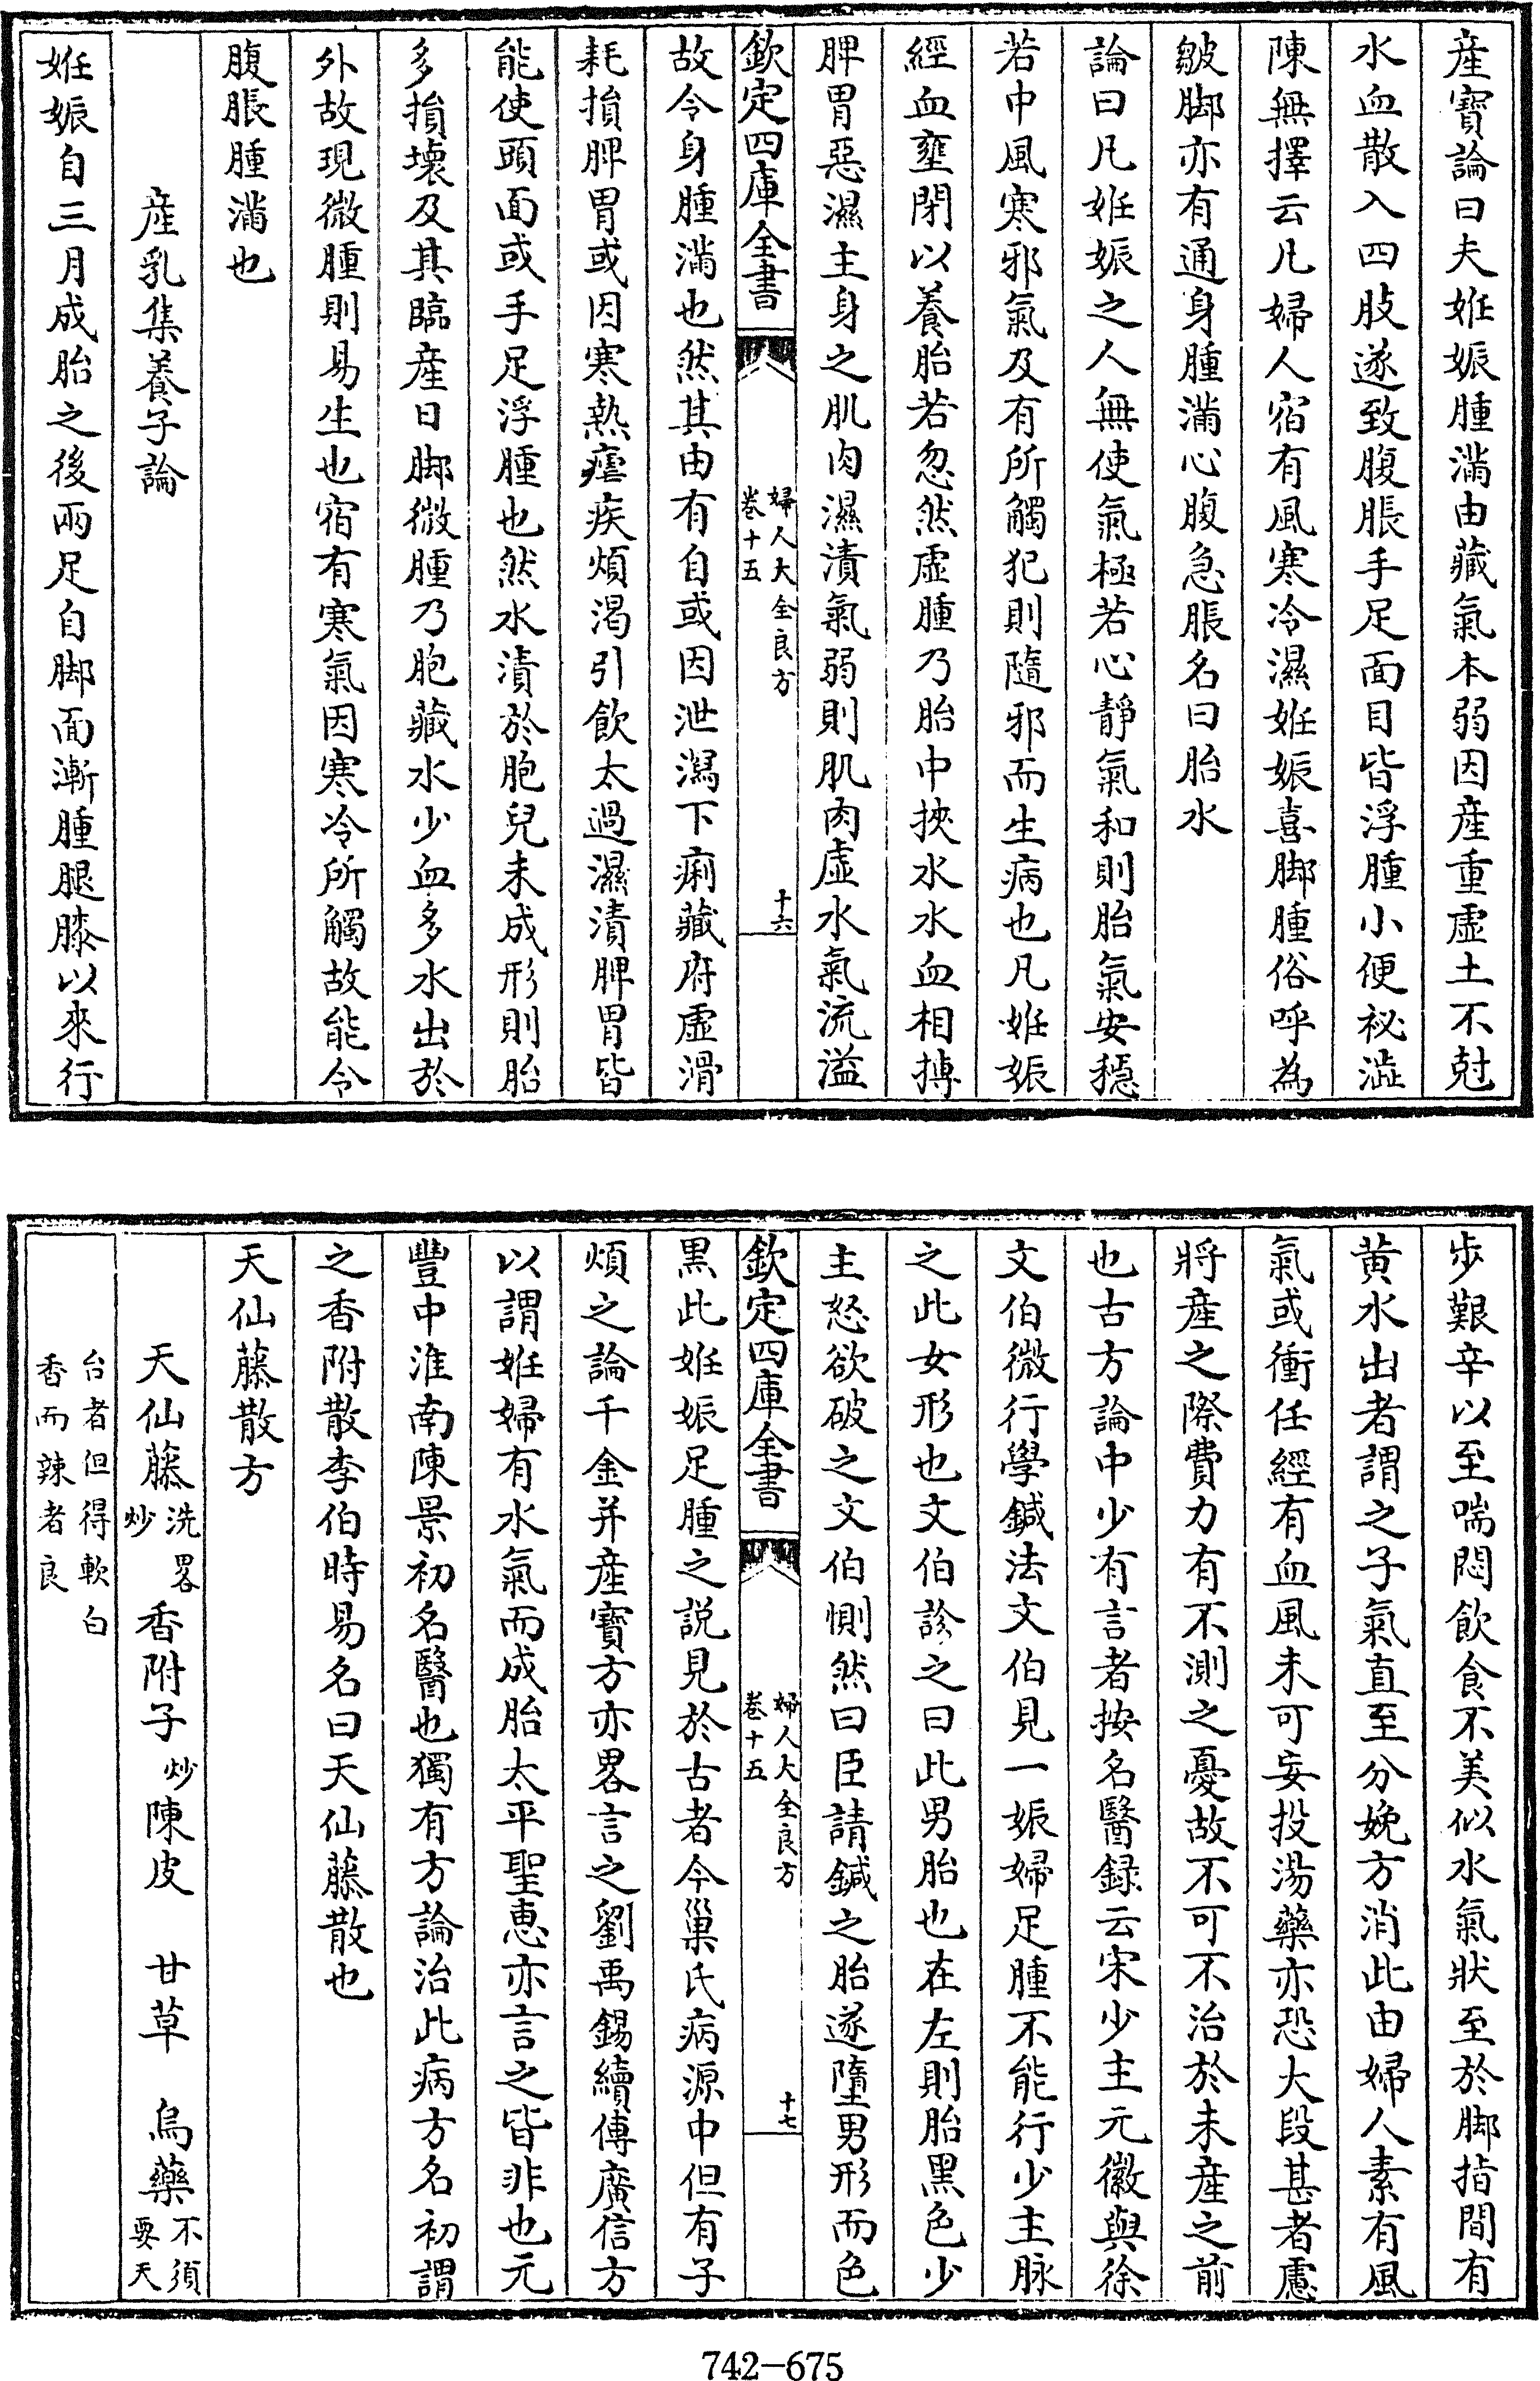 産寳論曰夫姙娠腫滿由藏氣本弱因産重虛土不尅
水血散入四肢遂致腹脹手足面目皆浮腫小便秘澁
陳無擇云凡婦人宿有風寒冷濕姙娠喜脚腫俗呼為
皺脚亦有通身腫滿心腹急脹名曰胎水
論曰凡姙娠之人無使氣極若心靜氣和則胎氣安穏
若中風寒邪氣及有所觸犯則隨邪而生病也凡姙娠
經血壅閉以養胎若忽然虛腫乃胎中挾水水血相搏
脾胃惡濕主身之肌肉濕漬氣弱則肌肉虛水氣流溢
欽定四庫全書
婦人大全良方
卷十五
十六
故令身腫滿也然其由有自或因泄瀉下痢藏府虛滑
耗損脾胃或因寒熱瘧疾煩渴引飲太過濕漬脾胃皆
能使頭面或手足浮腫也然水漬於胞兒未成形則胎
多損壞及其臨産日脚微腫乃胞藏水少血多水出於
外故現微腫則易生也宿有寒氣因寒冷所觸故能令
腹脹腫滿也
産乳集養子論
姙娠自三月成胎之後兩足自脚面漸腫腿膝以來行
步艱辛以至喘悶飲食不美似水氣狀至於脚指間有
黄水出者謂之子氣直至分娩方消此由婦人素有風
氣或衝任經有血風未可妄投湯藥亦恐大段甚者慮
將産之際費力有不測之憂故不可不治於未産之前
也古方論中少有言者按名醫録云宋少主元徽與徐
文伯微行學鍼法文伯見一娠婦足腫不能行少主脉
之此女形也文伯診之曰此男胎也在左則胎黑色少
主怒欲破之文伯惻然曰臣請鍼之胎遂墮男形而色
欽定四庫全書
婦人大全良方
卷十五
十七
黑此姙娠足腫之説見於古者今巢氏病源中但有子
煩之論千金并産寳方亦畧言之劉禹錫續傳廣信方
以謂姙婦有水氣而成胎太平聖惠亦言之皆非也元
豐中淮南陳景初名醫也獨有方論治此病方名初謂
之香附散李伯時易名曰天仙藤散也
天仙藤散方
天仙藤洗畧炒 香附子炒 陳皮 甘草 烏藥不須要天
台者但得軟白
香而辣者良
742-675